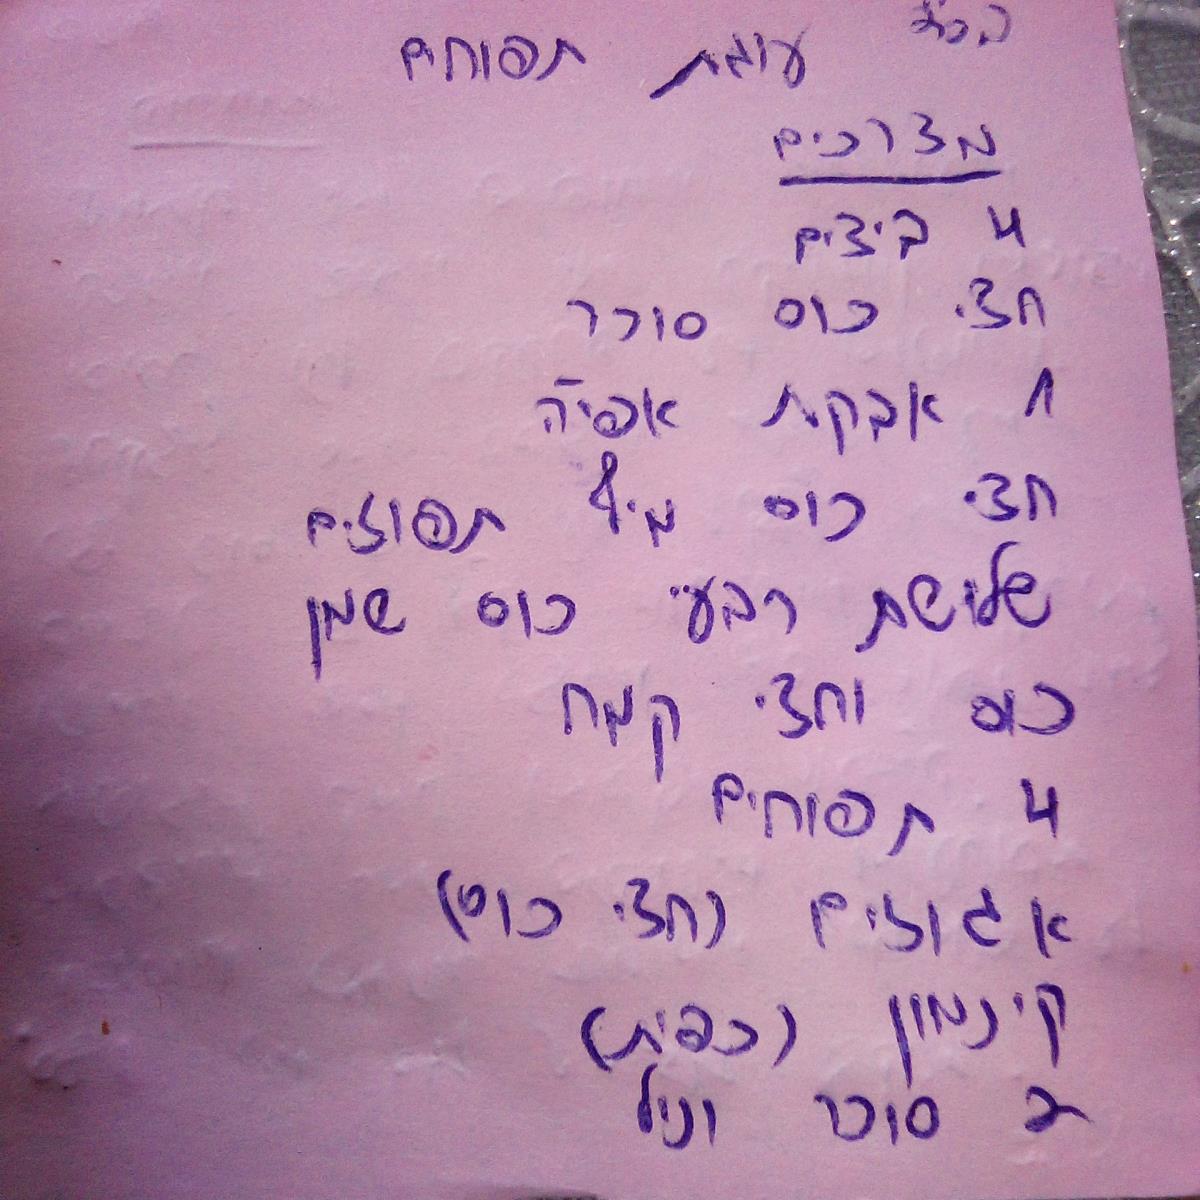 בס"ד
עוגת תפוחים
מצרכים
4 ביצים
חצי כוס סוכר
1 אבקת אפיה
חצי כוס מיץ תפוזים
שלושת רבעי כוס שמן
כוס וחצי קמח
4 תפוחים
אגוזים (חצי כוס)
קינמון (כפית)
2 סוכר וניל